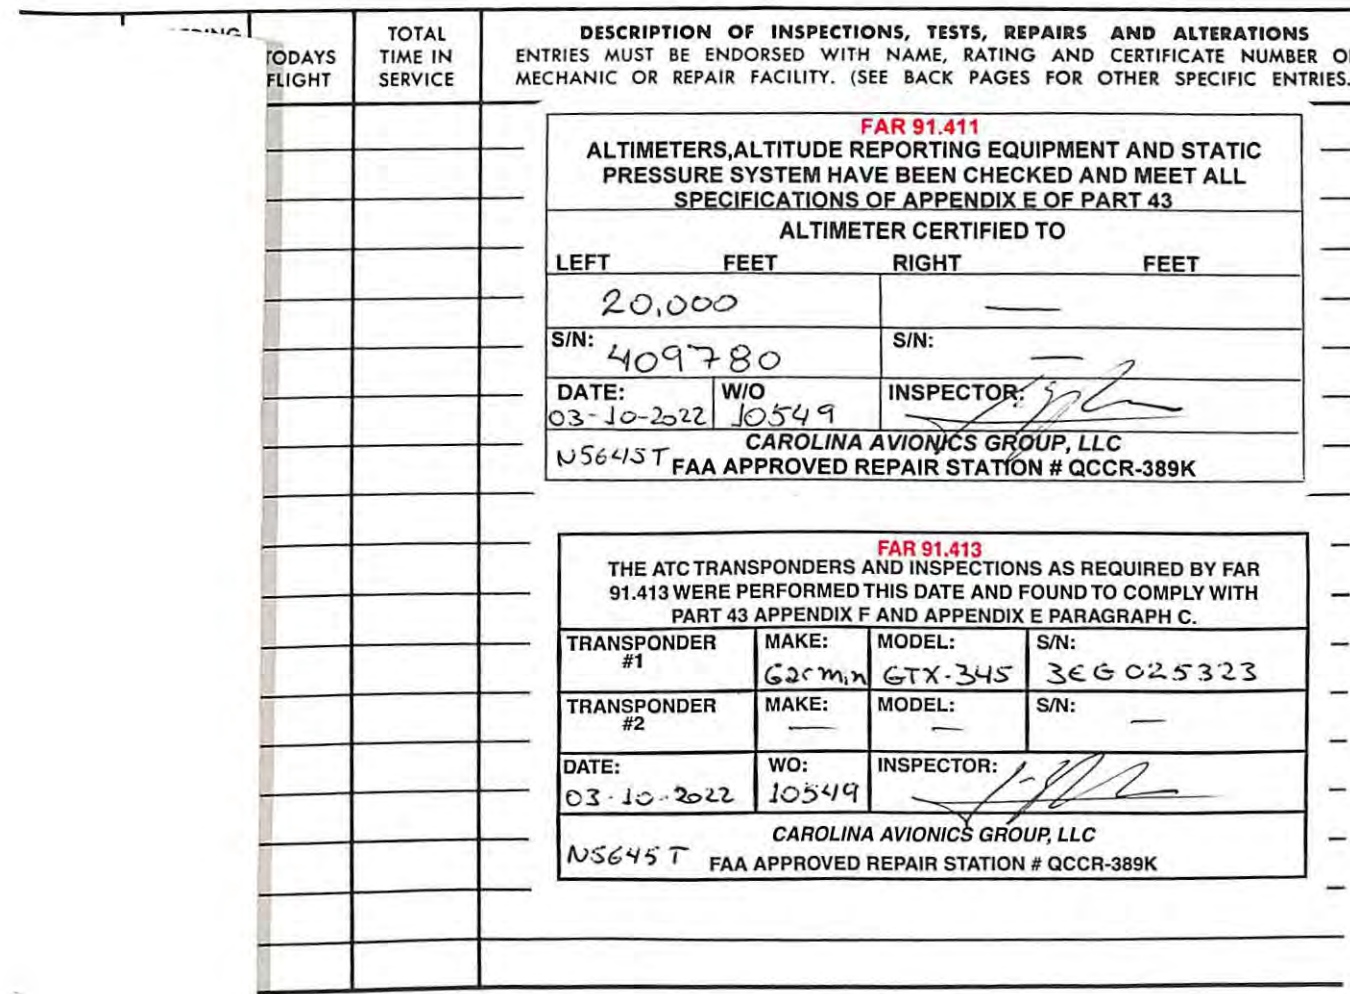 TODAYS
FLIGHT
TOTAL
TIME IN
SERVICE
DESCRIPTION OF INSPECTIONS, TESTS, REPAIRS AND ALTERATIONS
ENTRIES MUST BE ENDORSED WITH NAME, RATING AND CERTIFICATE NUMBER OF
MECHANIC OR REPAIR FACILITY. (SEE BACK PAGES FOR OTHER SPECIFIC ENTRIES.
FAR 91.411
ALTIMETERS,ALTITUDE REPORTING EQUIPMENT AND STATIC
PRESSURE SYSTEM HAVE BEEN CHECKED AND MEET ALL
SPECIFICATIONS OF APPENDIX E OF PART 43
ALTIMETER CERTIFIED TO
LEFT FEET RIGHT FEET
20,000 —
S/N: 409780 S/N: —
DATE: W/O INSPECTOR:
03-10-2022 10549
CAROLINA AVIONICS GROUP, LLC
N5645T FAA APPROVED REPAIR STATION # QCCR-389K
FAR 91.413
THE ATC TRANSPONDERS AND INSPECTIONS AS REQUIRED BY FAR
91.413 WERE PERFORMED THIS DATE AND FOUND TO COMPLY WITH
PART 43 APPENDIX F AND APPENDIX E PARAGRAPH C.
TRANSPONDER MAKE: MODEL: S/N:
#1 Garmin GTX-345 3EG025323
TRANSPONDER MAKE: MODEL: S/N:
#2 — — —
DATE: WO: INSPECTOR:
03-10-2022 10549
CAROLINA AVIONICS GROUP, LLC
N5645T FAA APPROVED REPAIR STATION # QCCR-389K